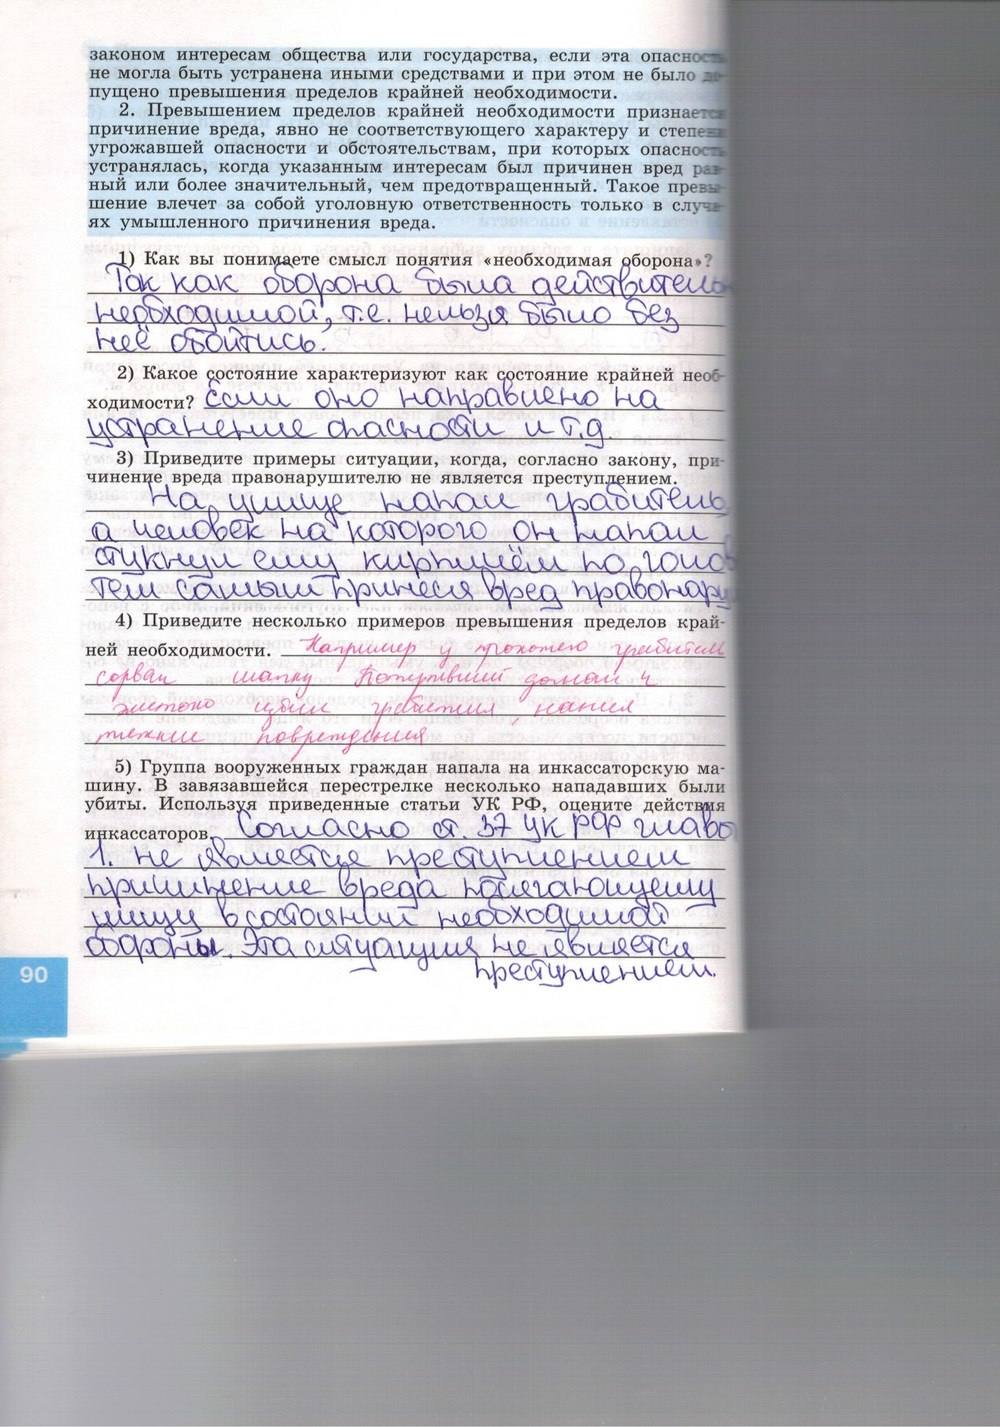 законом интересам общества или государства, если эта опасность
не могла быть устранена иными средствами и при этом не было до-
пущено превышения пределов крайней необходимости.
2. Превышением пределов крайней необходимости признается
причинение вреда, явно не соответствующего характеру и степени
угрожавшей опасности и обстоятельствам, при которых опасность
устранялась, когда указанным интересам был причинен вред рав-
ный или более значительный, чем предотвращенный. Такое превы-
шение влечет за собой уголовную ответственность только в случа-
ях умышленного причинения вреда.
1) Как вы понимаете смысл понятия «необходимая оборона»?
Так как оборона была действитель
необходимой, т.е. нельзя было без
неё обойтись.
2) Какое состояние характеризуют как состояние крайней необ-
ходимости? Если оно направлено на
устранение опасности и т.д.
3) Приведите примеры ситуации, когда, согласно закону, при-
чинение вреда правонарушителю не является преступлением.
На улице напал грабитель
а человек на которого он напал
стукнул ему кирпичём по голо
тем самым принеся вред правонару
4) Приведите несколько примеров превышения пределов край-
ней необходимости. Например у прохожего грабитель
сорвал шапку. Потерпевший догнал и
жестоко избил грабителя, нанися
тяжкие повреждения
5) Группа вооруженных граждан напала на инкассаторскую ма-
шину. В завязавшейся перестрелке несколько нападавших были
убиты. Используя приведенные статьи УК РФ, оцените действия
инкассаторов. Согласно ст. 37 УК РФ главы
1. не является преступлением
причинение вреда посягающему
лицу в состоянии необходимой
обороны. Эта ситуация не является
преступлением.
90